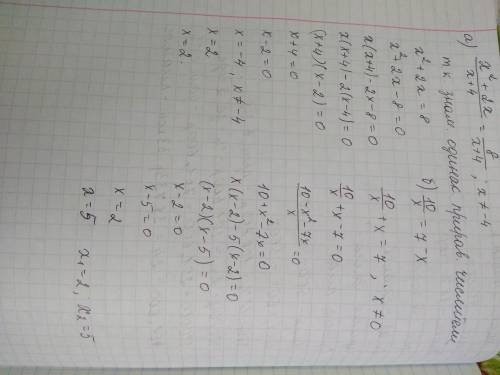 а) x² + 2x / x+4 = 8 / x+4 ; x ≠ -4
тк знам. одинак прирав. числители
x² + 2x = 8
x² + 2x - 8 = 0
x(x+4) - 2x - 8 = 0
x(x+4) - 2(x-4) = 0
(x+4)(x-2) = 0
x+4 = 0
x-2 = 0
x = -4, x ≠ -4
x = 2
x = 2.
б) 10/x = 7 - x
10/x + x = 7 ; x ≠ 0
10/x + x - 7 = 0
10 - x² - 7x / x = 0
10 - x² - 7x = 0
x(x-2) - 5(x-2) = 0
(x-2)(x-5) = 0
x-2 = 0
x-5 = 0
x = 2
x = 5 x₁ = 2, x₂ = 5